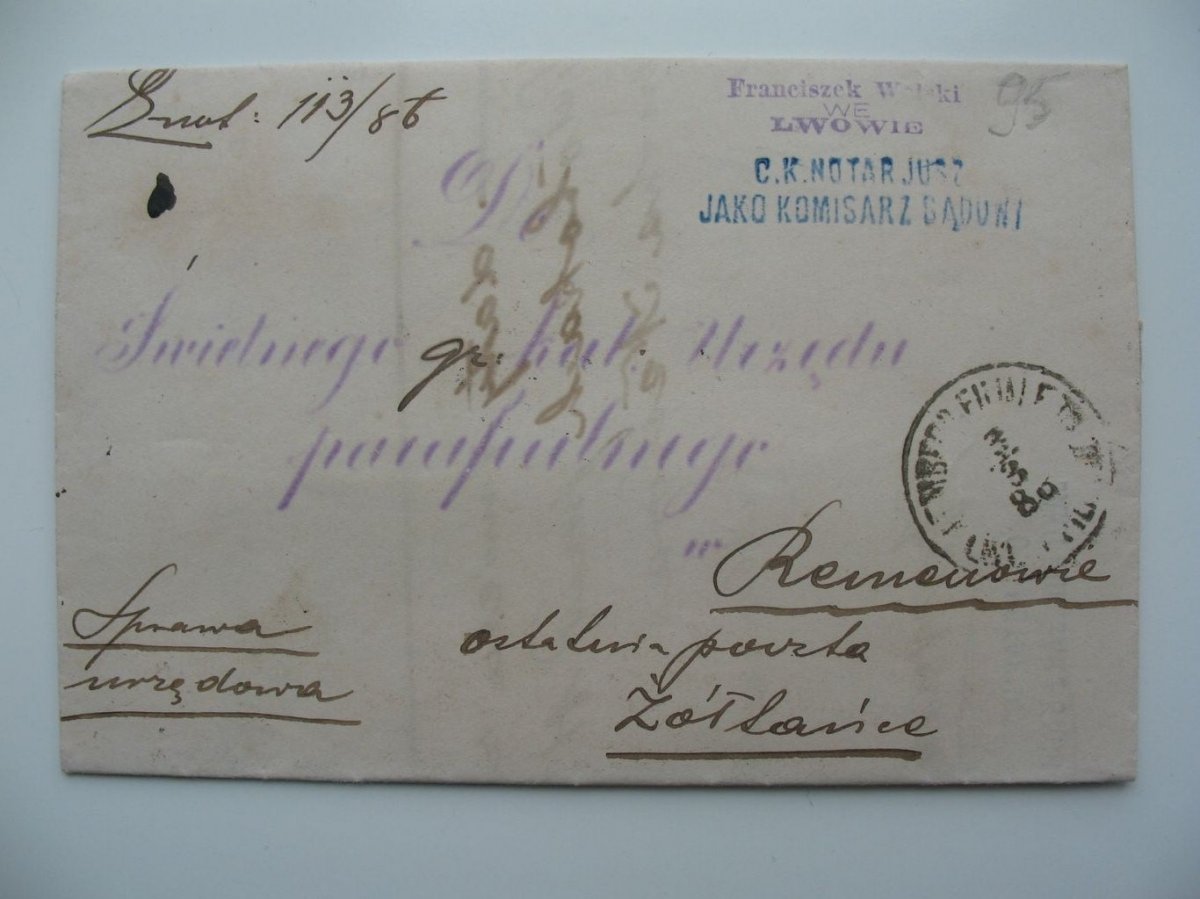 not: 113/86
Franciszek Wolski
WE
LWOWIE
95
C.K. NOTARJUSZ
JAKO KOMISARZ SĄDOWY
Do
Świetnego gr. kat. Urzędu
parafialnego
w Remenowie
ostatnia poczta
Żółtańce
Sprawa
urzędowa